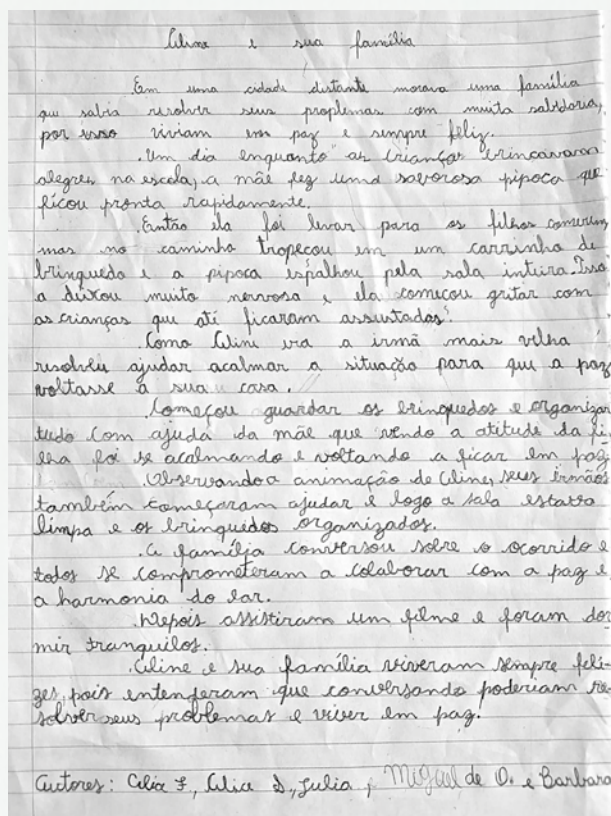 Celine e sua família
Em uma cidade distante morava uma família
que sabia resolver seus proplemas com muita sabedoria,
por isso viviam em paz e sempre feliz.
.Um dia enquanto as crianças brincavam
alegres na escola, a mãe fez uma saborosa pipoca que
ficou pronta rapidamente.
.Então ela foi levar para os filhos comerem
mas no caminho tropeçou em um carrinho de
brinquedo e a pipoca espalhou pela sala inteira. Isso
a deixou muito nervosa e ela começou gritar com
as crianças que até ficaram assustadas.
.Como Celine era a irmã mais velha
resolveu ajudar acalmar a situação para que a paz
voltasse a sua casa.
.Começou guardar os brinquedos e organizar
tudo com ajuda da mãe que vendo a atitude da fi
lha foi se acalmando e voltando a ficar em paz.
.Observando a animação de Celine, seus irmãos
também começaram ajudar e logo a sala estava
limpa e os brinquedos organizados.
.A família conversou sobre o ocorrido e
todos se comprometeram a colaborar com a paz e
a harmonia do lar.
.Depois assistiram um filme e foram dor
mir tranquilos.
.Celine e sua família viveram sempre feli-
zes, pois entenderam que conversando poderiam re
solver seus problemas e viver em paz.
Autores: Alice F., Alice S., Julia, Miguel de O. e Barbara